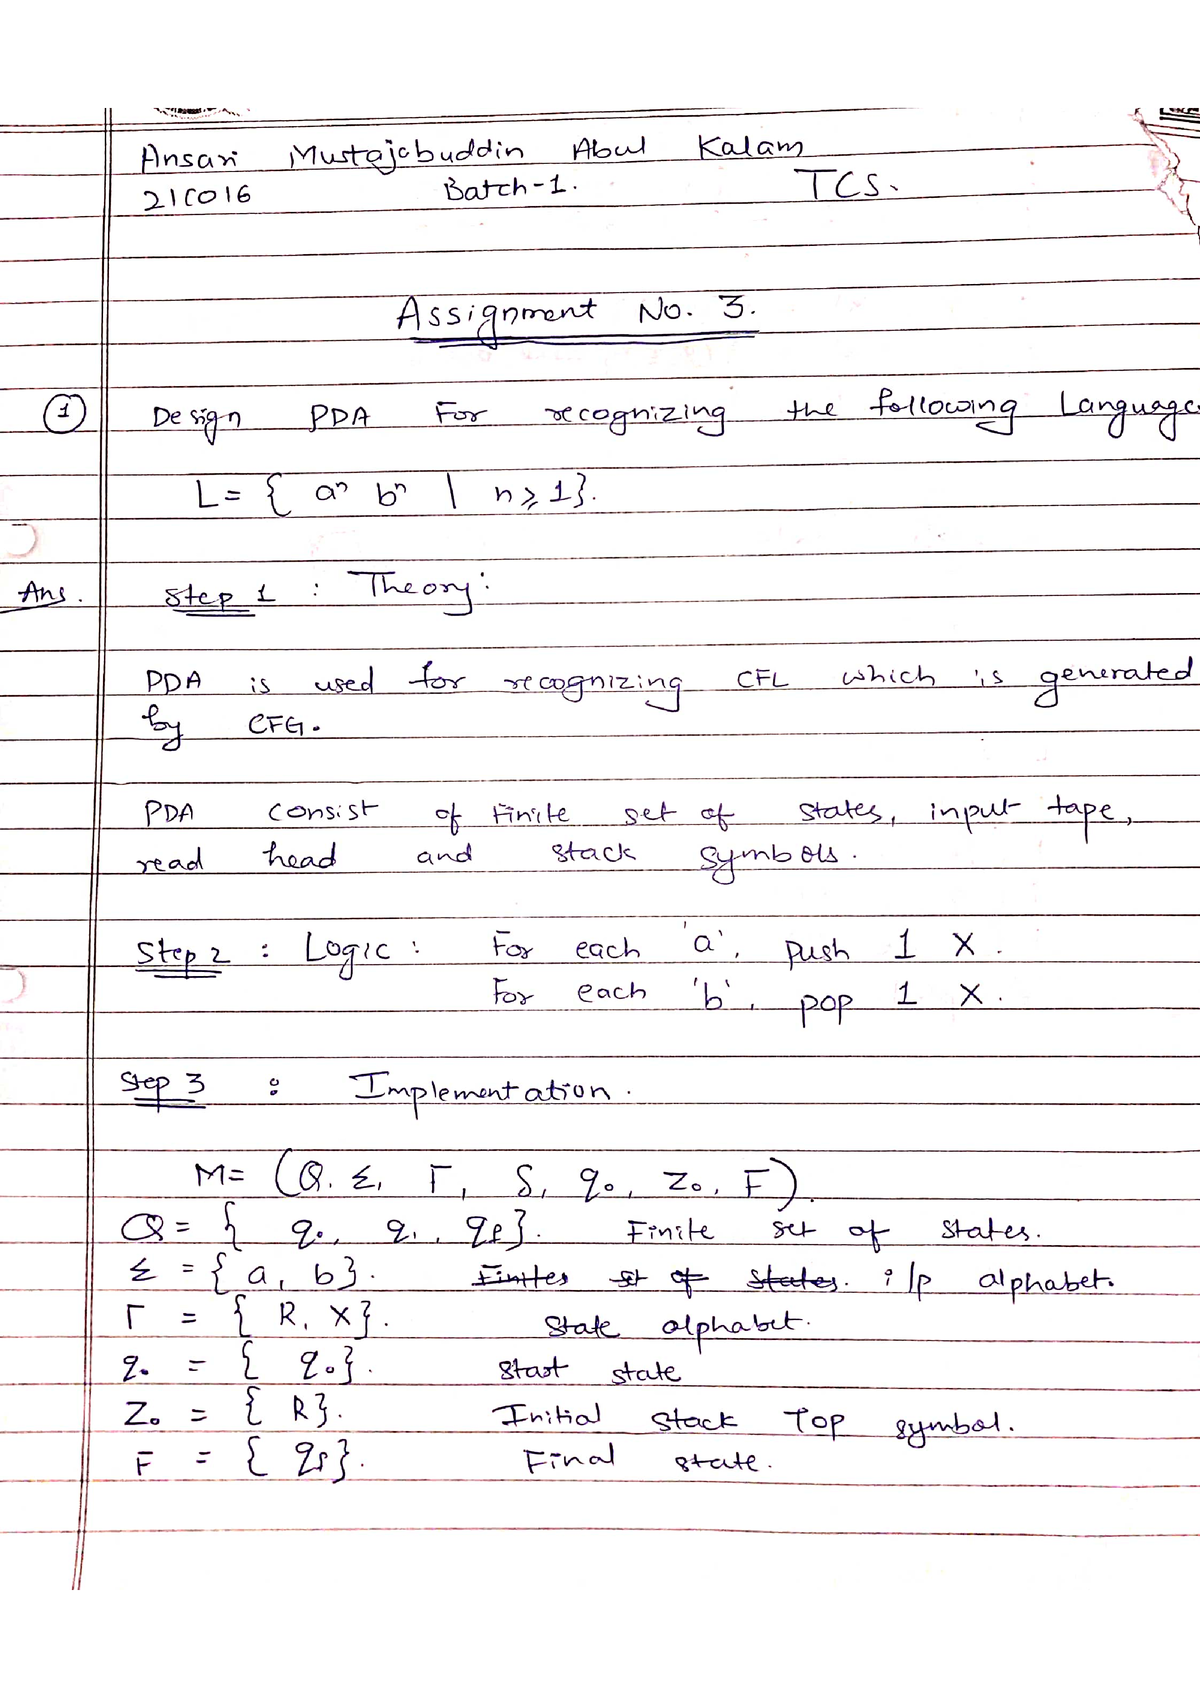 Ansari Mustajabuddin Abul Kalam
21CO16 Batch-1. TCS.
Assignment No. 3.
① Design PDA For recognizing the following Language
L = { aⁿ bⁿ | n ⩾ 1}.
Ans. Step 1 : Theory:
PDA is used for recognizing CFL which is generated
by CFG.
PDA consist of Finite set of states, input tape,
read head and stack symbols.
Step 2 : Logic : For each 'a', push 1 X.
For each 'b', pop 1 X.
Step 3 : Implementation.
M = (Q, Σ, Γ, δ, q₀, Z₀, F).
Q = { q₀, q₁, qf}. Finite set of states.
Σ = { a, b}. Finites set of states. i/p alphabet.
Γ = { R, X}. State alphabet.
q₀ = { q₀}. Start state
Z₀ = { R}. Initial stack Top symbol.
F = { qf}. Final state.